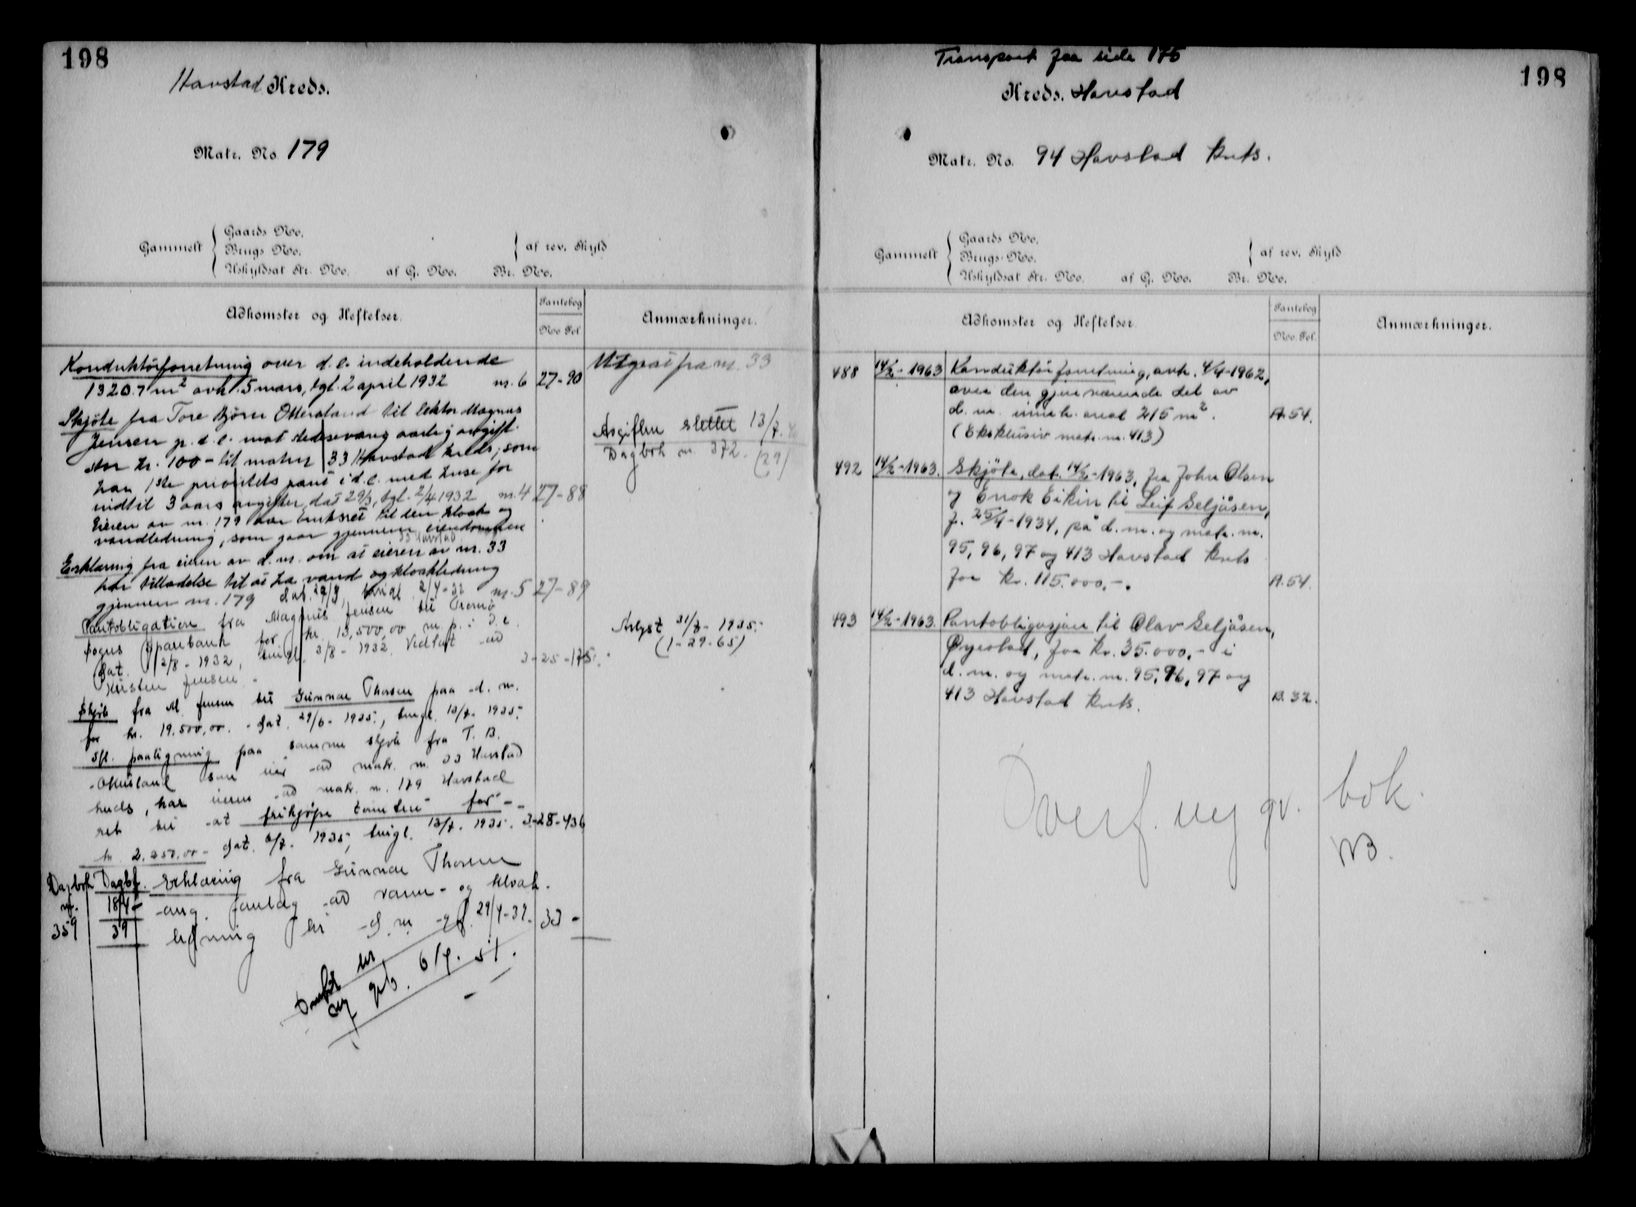 198
Havstad Kreds.
Matr. No. 179
Gammelt
Gaards No.
Brugs No.
Uskyldsat Str. No. af G. No. Br. No.
af rev. Skyld
Adkomster og Heftelser.
Pantebog
No. Fol.
Anmærkninger.
Konduktørforretning over d. e. indeholdende
1320.7 m² avh. 5 mars, tgl. 2 april 1932 nr. 6 27-90
Utgaat fra nr. 33
Skjøte fra Tore Bjørn Otterstand til lektor Magnus
Jensen p. d. e. mot stedsevarig aarlig avgift
stor kr. 100 - til matr. nr. 33 Havstad kreds, som
har 1ste prioritets pant i d. e. med huse for
indtil 3 aars avgifter, dat 29/3, tgl. 2/4 1932 nr. 4 27-88
Avgiften slettet 13/7.
Dagbok nr. 372.
(29)
Eieren av nr. 179 har til den kloak og
vandledning, som gaar gjennem eiendommen
33 Havstad
Erklæring fra eieren av d. nr. om at eieren av nr. 33
har tilladelse til at ha vand og kloakledning
gjennem nr. 179 dat. 29/3, tingl. 2/4-32 nr. 5 27-89
Pantobligation fra Magnus Jensen til Tromø
sogns Sparebank for kr. 13,500,00 m. p. i d. e.
dat. 2/8-1932, tingl. 3/8-1932. Vedtat av
Kirsten Jensen. 3-25-175.
Avlyst 31/7-1935.
(1-29-65)
Skjøte fra M. Jensen til Gunnar Thorsen paa d. nr.
for kr. 19.500,00. - dat. 29/6-1935, tingl. 12/7. 1935.
Ifl. paategning paa samme skjøte fra T. B.
Otterstand som eier av matr. nr. 33 Havstad
kreds, har eieren av matr. nr. 179 Havstad
ret til at frikjøpe tomten for
kr. 2.250,00 - dat. 2/7. 1935, tingl. 12/7. 1935. 3-28-436
Dagbok
nr.
359
Dagbf.
18/4
39
Erklæring fra Gunnar Thorsen
ang. av vann- og kloak-
ledning d. nr. 29/4-32. 33 -
6/9. 51.
Transport fra side 175
198
Kreds. Havstad
Matr. No. 94 Havstad krets.
Gammelt
Gaards No.
Brugs No.
Uskyldsat Str. No. af G. No. Br. No.
af rev. Skyld
Adkomster og Heftelser.
Pantebog
No. Fol.
Anmærkninger.
488 14/2-1963 Konduktørforretning, avh. 4/9-1962,
over den gjenværende del av
d. nr. inneh. areal 215 m².
(Eksklusiv matr. nr. 413) A.54.
492 14/2-1963. Skjøte, dat. 14/2-1963, fra John Olsen
og Enok Eikin til Leif Seljåsen,
f. 25/9-1934, på d. nr. og matr. nr.
95, 96, 97 og 413 Havstad krets
for kr. 115.000,-. A.54.
493 14/2-1963. Pantobligasjon til Olav Seljåsen,
Øyestad, for kr. 35.000,- i
d. nr. og matr. nr. 95, 96, 97 og
413 Havstad krets. B.32.
Overf. ny gr. bok.